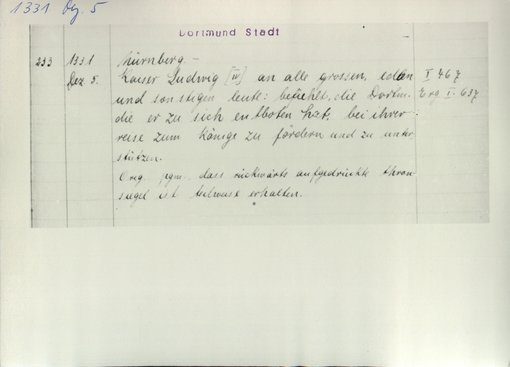 1331 Dez 5
Dortmund Stadt
233 1331 Nürnberg. -
Dez 5. Kaiser Ludwig [IV] an alle grossen, edlen I 467
und sonstigen leute: befiehlt, die Dortm. Erg I. 637
die er zu sich entboten hat, bei ihrer
reise zum Könige zu fördern und zu unter
stützen.
Org. pgm. dass rückwärts aufgedrückte thron
siegel ist teilweise erhalten.